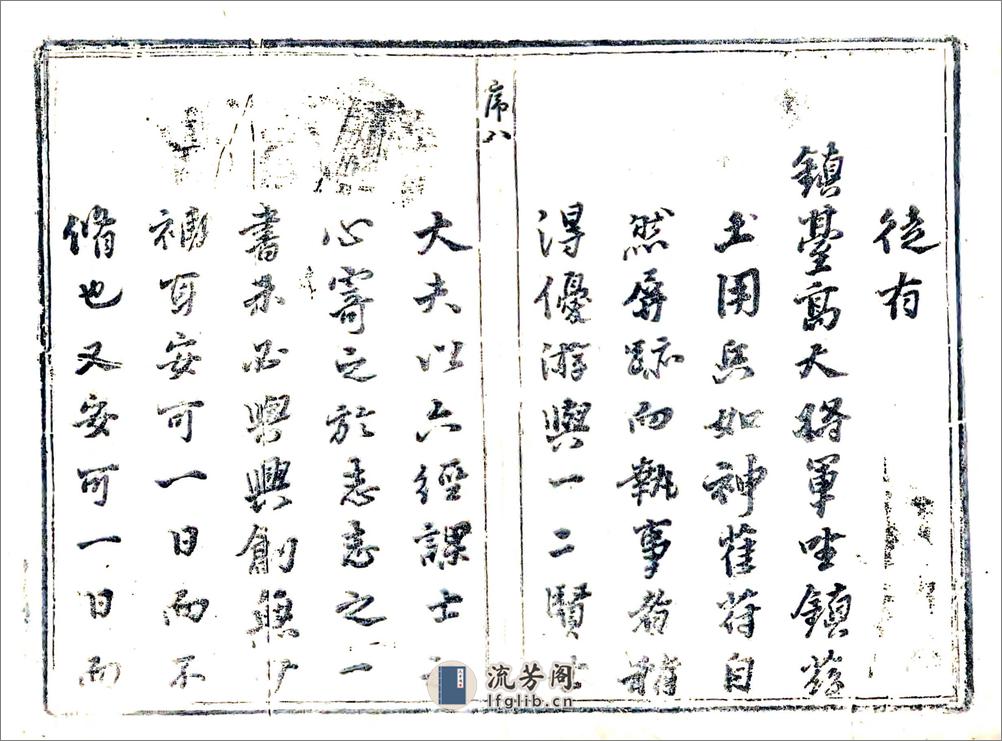 徒有
鎮臺高大將軍坐鎮茲
土用兵如神萑苻自
然屏跡而執事者稍
得優游與一二賢
序八
大夫以六經課士
心寄之於志志之一
書未必與興創無少
補耳安可一日而不
脩也又安可一日而
流芳阁
lfglib.cn